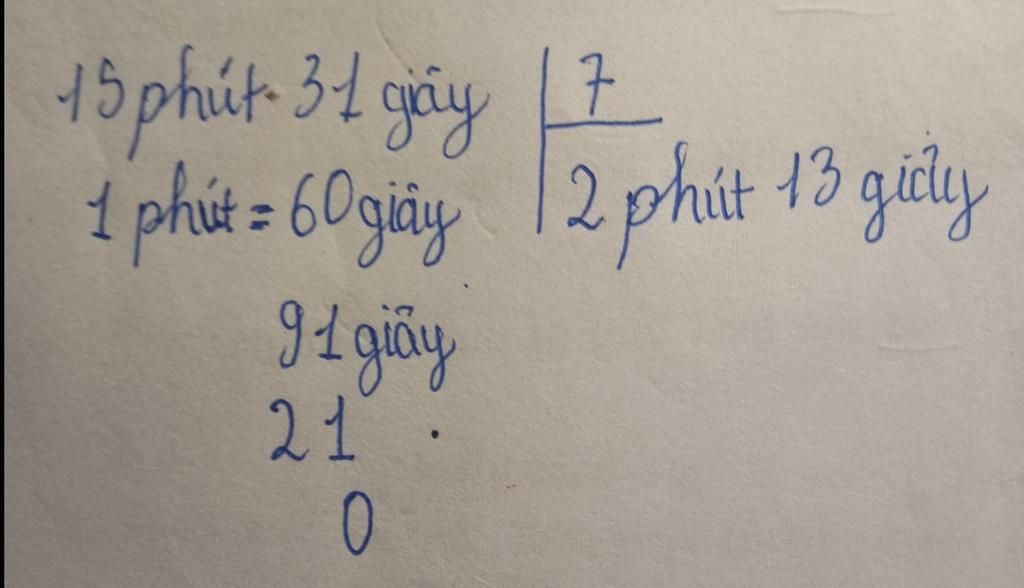 15 phút 31 giây | 7
1 phút = 60 giây | 2 phút 13 giây
91 giây
21
0